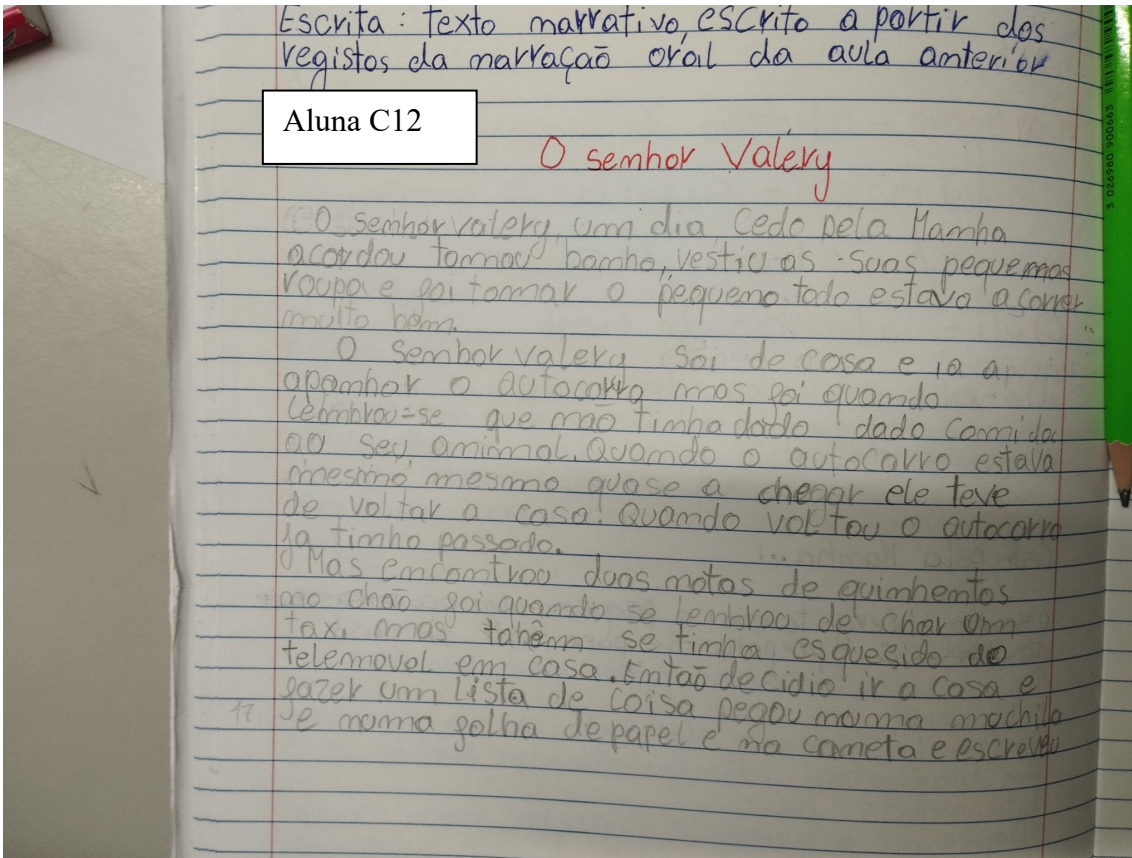 Escrita: texto narrativo, escrito a partir dos
registos da narração oral da aula anterior
Aluna C12
O senhor Valéry
O senhor valery um dia Cedo pela Manha
acordou tomou banho, vestiu as suas pequenas
roupa e foi tomar o pequeno todo estava a correr
muito bem.
O Senhor valery Sai de casa e ia a
apanhar o autocarro mas foi quando
Lembrou-se que não tinha dado dado comida
ao seu animal. Quando o autocarro estava
mesmo mesmo quase a chegar ele teve
de voltar a casa! Quando voltou o autocarro
ja tinha passado.
Mas encontrou duas notas de quinhentos
no chão foi quando se lembrou de char um
taxi mas tabêm se tinha esquesido do
telemovel em casa. Então decidio ir a casa e
fazer um Lista de coisa pegou numa mochila
17 e numa folha de papel e na caneta e escreveu
3 026980 900663